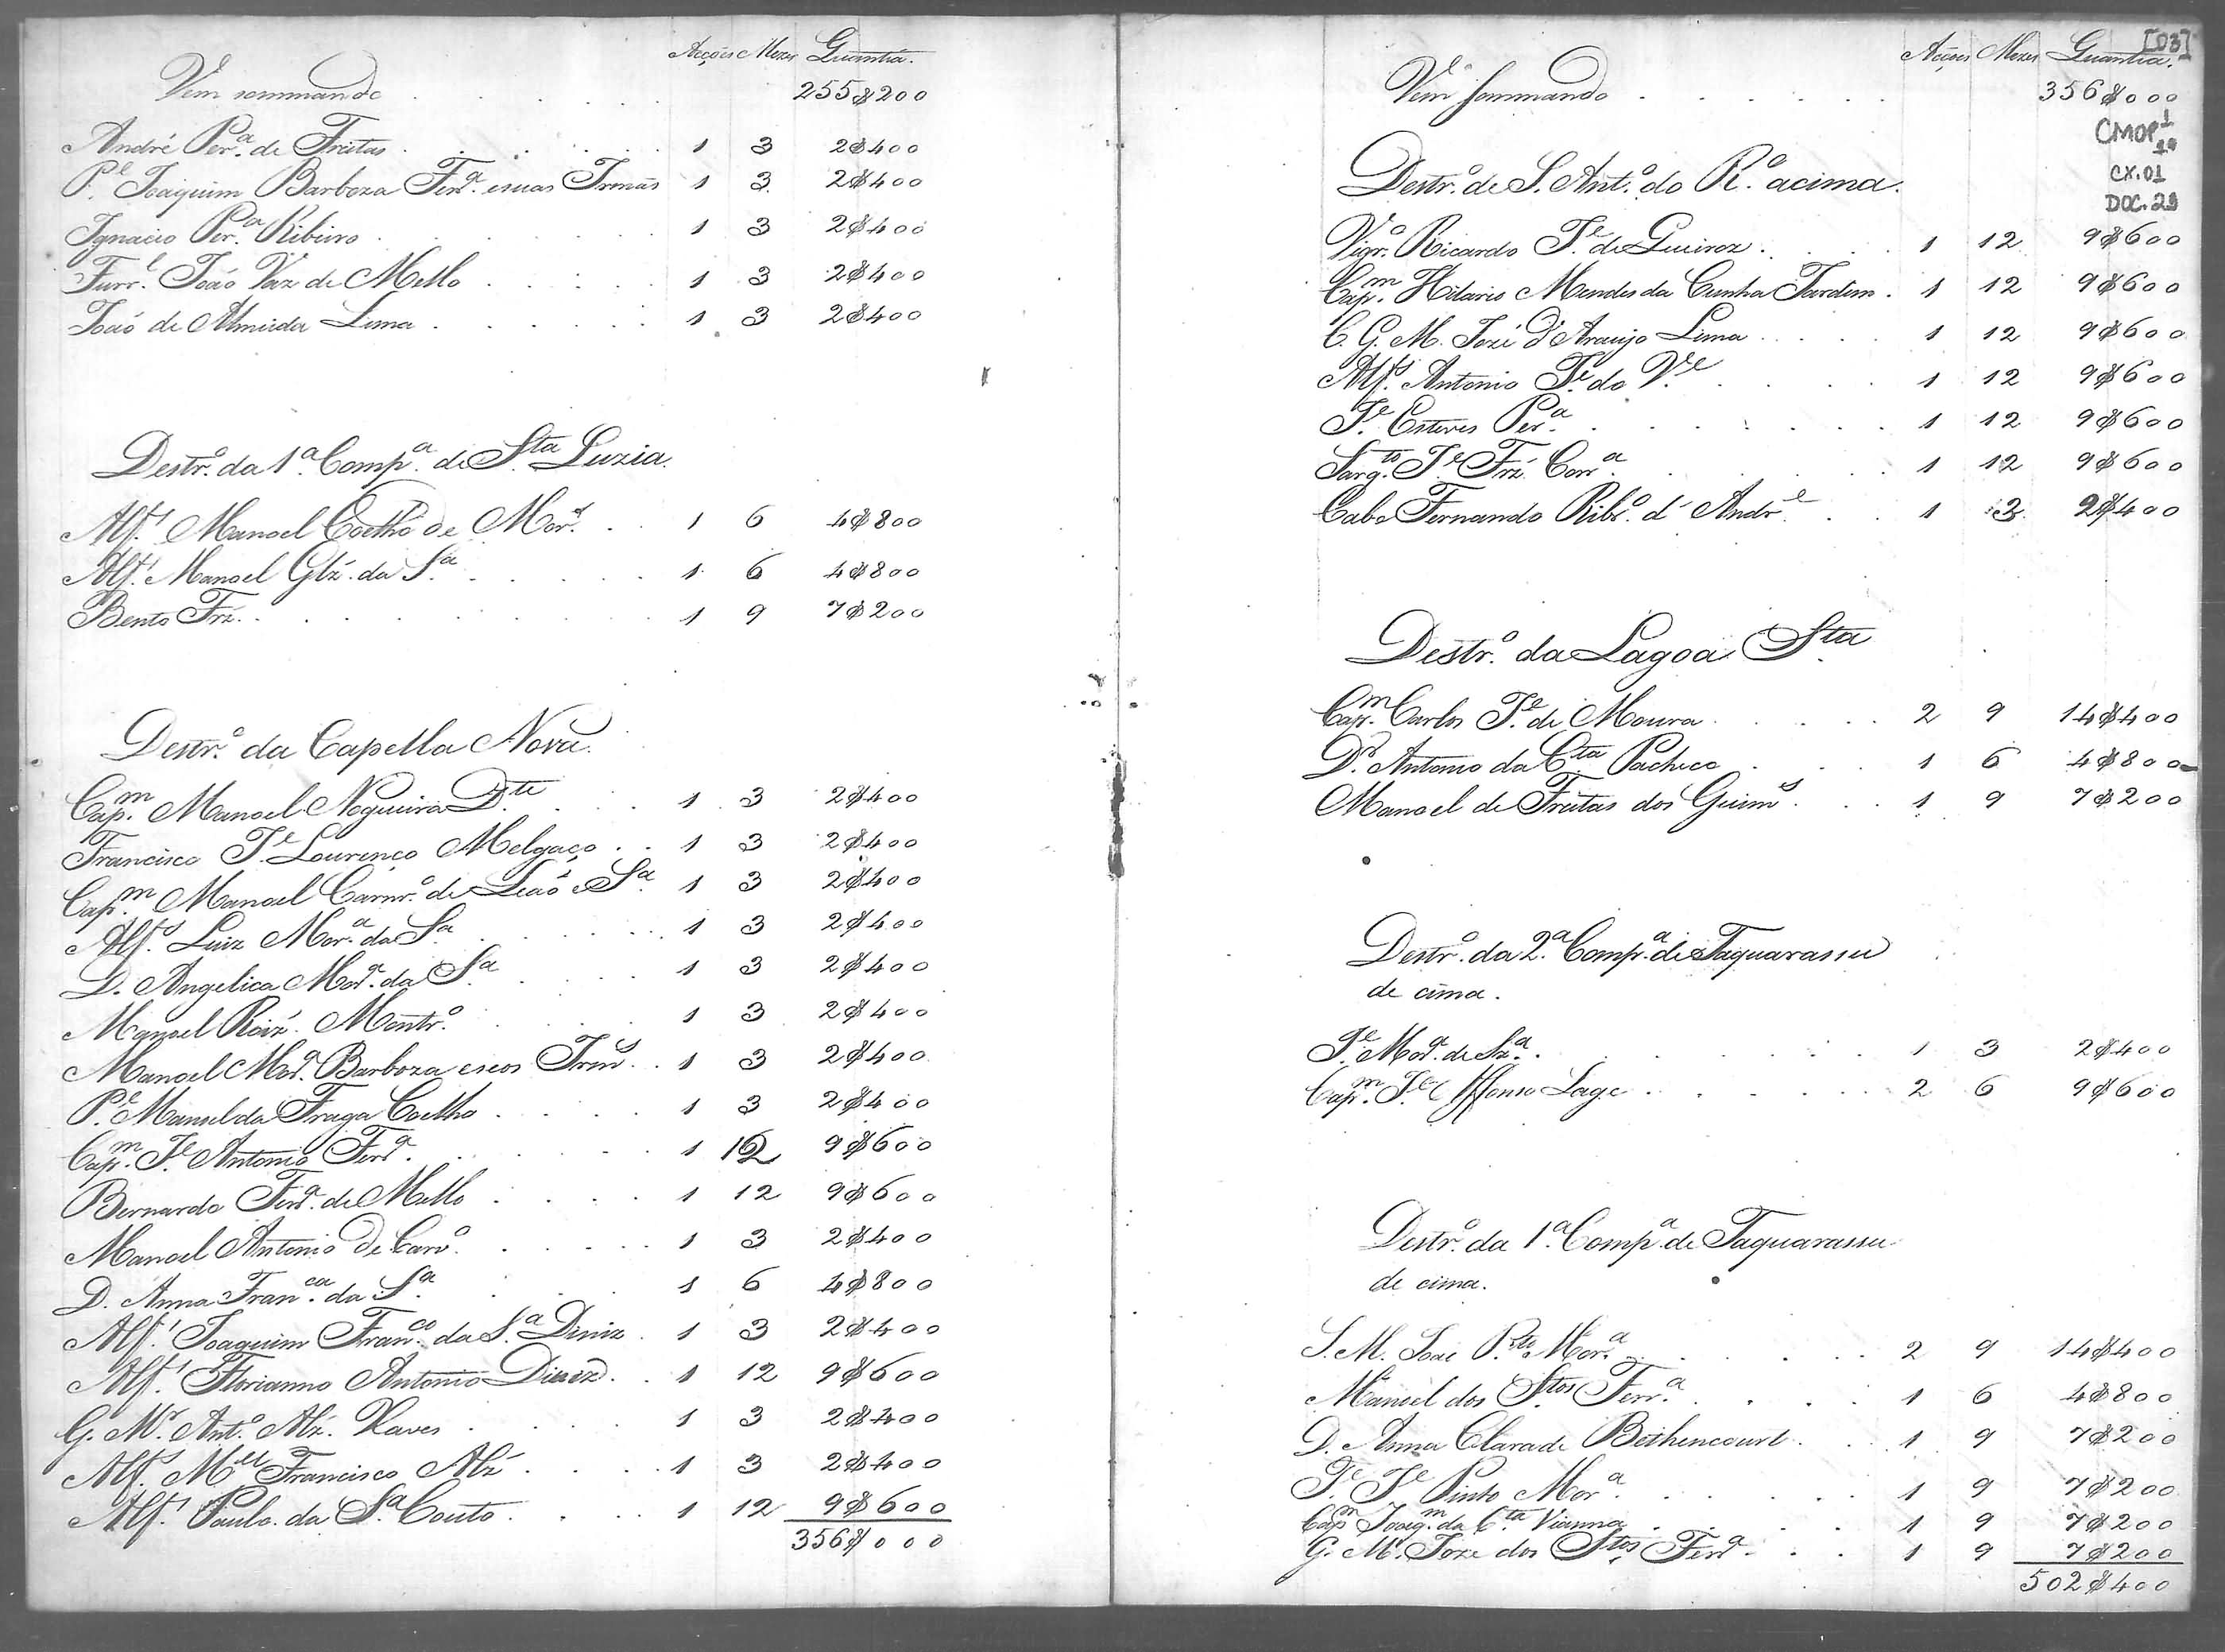 Acções Mezes Quantia.
Vem sommando 255$200
André Per.ª de Freitas 1 3 2$400
P.e Joaquim Barboza Ferr.ª e suas Irmãs 1 3 2$400
Ignacio Per.ª Ribeiro 1 3 2$400
Furr.l João Vaz de Mello 1 3 2$400
João de Almeida Lima 1 3 2$400
Destr.o da 1.ª Comp.ª de S.ta Luzia.
Alf.s Manoel Coelho de Mor.s 1 6 4$800
Alf.s Manoel Glz. da S.ª 1 6 4$800
Bento Frz. 1 9 7$200
Destr.o da Capella Nova.
Cap.m Manoel Nogueira D.te 1 3 2$400
Francisco J.e Lourenço Melgaço 1 3 2$400
Cap.m Manoel Carnr.o de Leaõ e S.ª 1 3 2$400
Alf.s Luiz Mor.ª da S.ª 1 3 2$400
D. Angelica Mor.ª da S.ª 1 3 2$400
Manoel Roiz. Montr.o 1 3 2$400
Manoel Mor.ª Barboza e seos Irm.s 1 3 2$400
P.e Manoel da Fraga Coelho 1 3 2$400
Cap.m J.e Antonio Ferr.ª 1 12 9$600
Bernardo Ferr.ª de Mello 1 12 9$600
Manoel Antonio de Carv.o 1 3 2$400
D. Anna Fran.ca da S.ª 1 6 4$800
Alf.s Joaquim Fran.co da S.ª Diniz 1 3 2$400
Alf.s Florianno Antonio Diniz 1 12 9$600
G. M.r Ant.o Alz. Xaves 1 3 2$400
Alf.s M.el Francisco Alz 1 3 2$400
Alf.s Paulo da S.ª Couto 1 12 9$600
356$000
[03]
Acções Mezes Quantia.
Vem sommando 356$000
CMOP 1
19
CX.01
DOC.29
Destr.o de S. Ant.o do R.o acima.
Vigr.o Ricardo J.e de Queiroz 1 12 9$600
Cap.m Hilario Mendes da Cunha Jardim 1 12 9$600
C. G. M. Jozé d'Araujo Lima 1 12 9$600
Alf.s Antonio J.e do V.le 1 12 9$600
J.e Esteves Per.ª 1 12 9$600
Sarg.to J.e Frz. Corr.ª 1 12 9$600
Cabo Fernando Ribr.o d'Andr.e 1 3 2$400
Destr.o da Lagoa S.ta
Cap.m Carlos J.e de Moura 2 9 14$400
D.r Antonio da C.ta Pacheco 1 6 4$800
Manoel de Freitas dos Guim.s 1 9 7$200
Destr.o da 2.ª Comp.ª de Taquarassu
de cima.
J.e Mor.ª de Sz.ª 1 3 2$400
Cap.m J.e Affonso Lage 2 6 9$600
Destr.o da 1.ª Comp.ª de Taquarassu
de cima.
S. M. José P.to Mor.ª 2 9 14$400
Manoel dos S.tos Ferr.ª 1 6 4$800
D. Anna Clara de Bethencourt 1 9 7$200
J.e Pinto Mor.ª 1 9 7$200
Cap.m Joaq.m da C.ta Vianna 1 9 7$200
G. M. Joze dos S.tos Ferr.ª 1 9 7$200
502$400